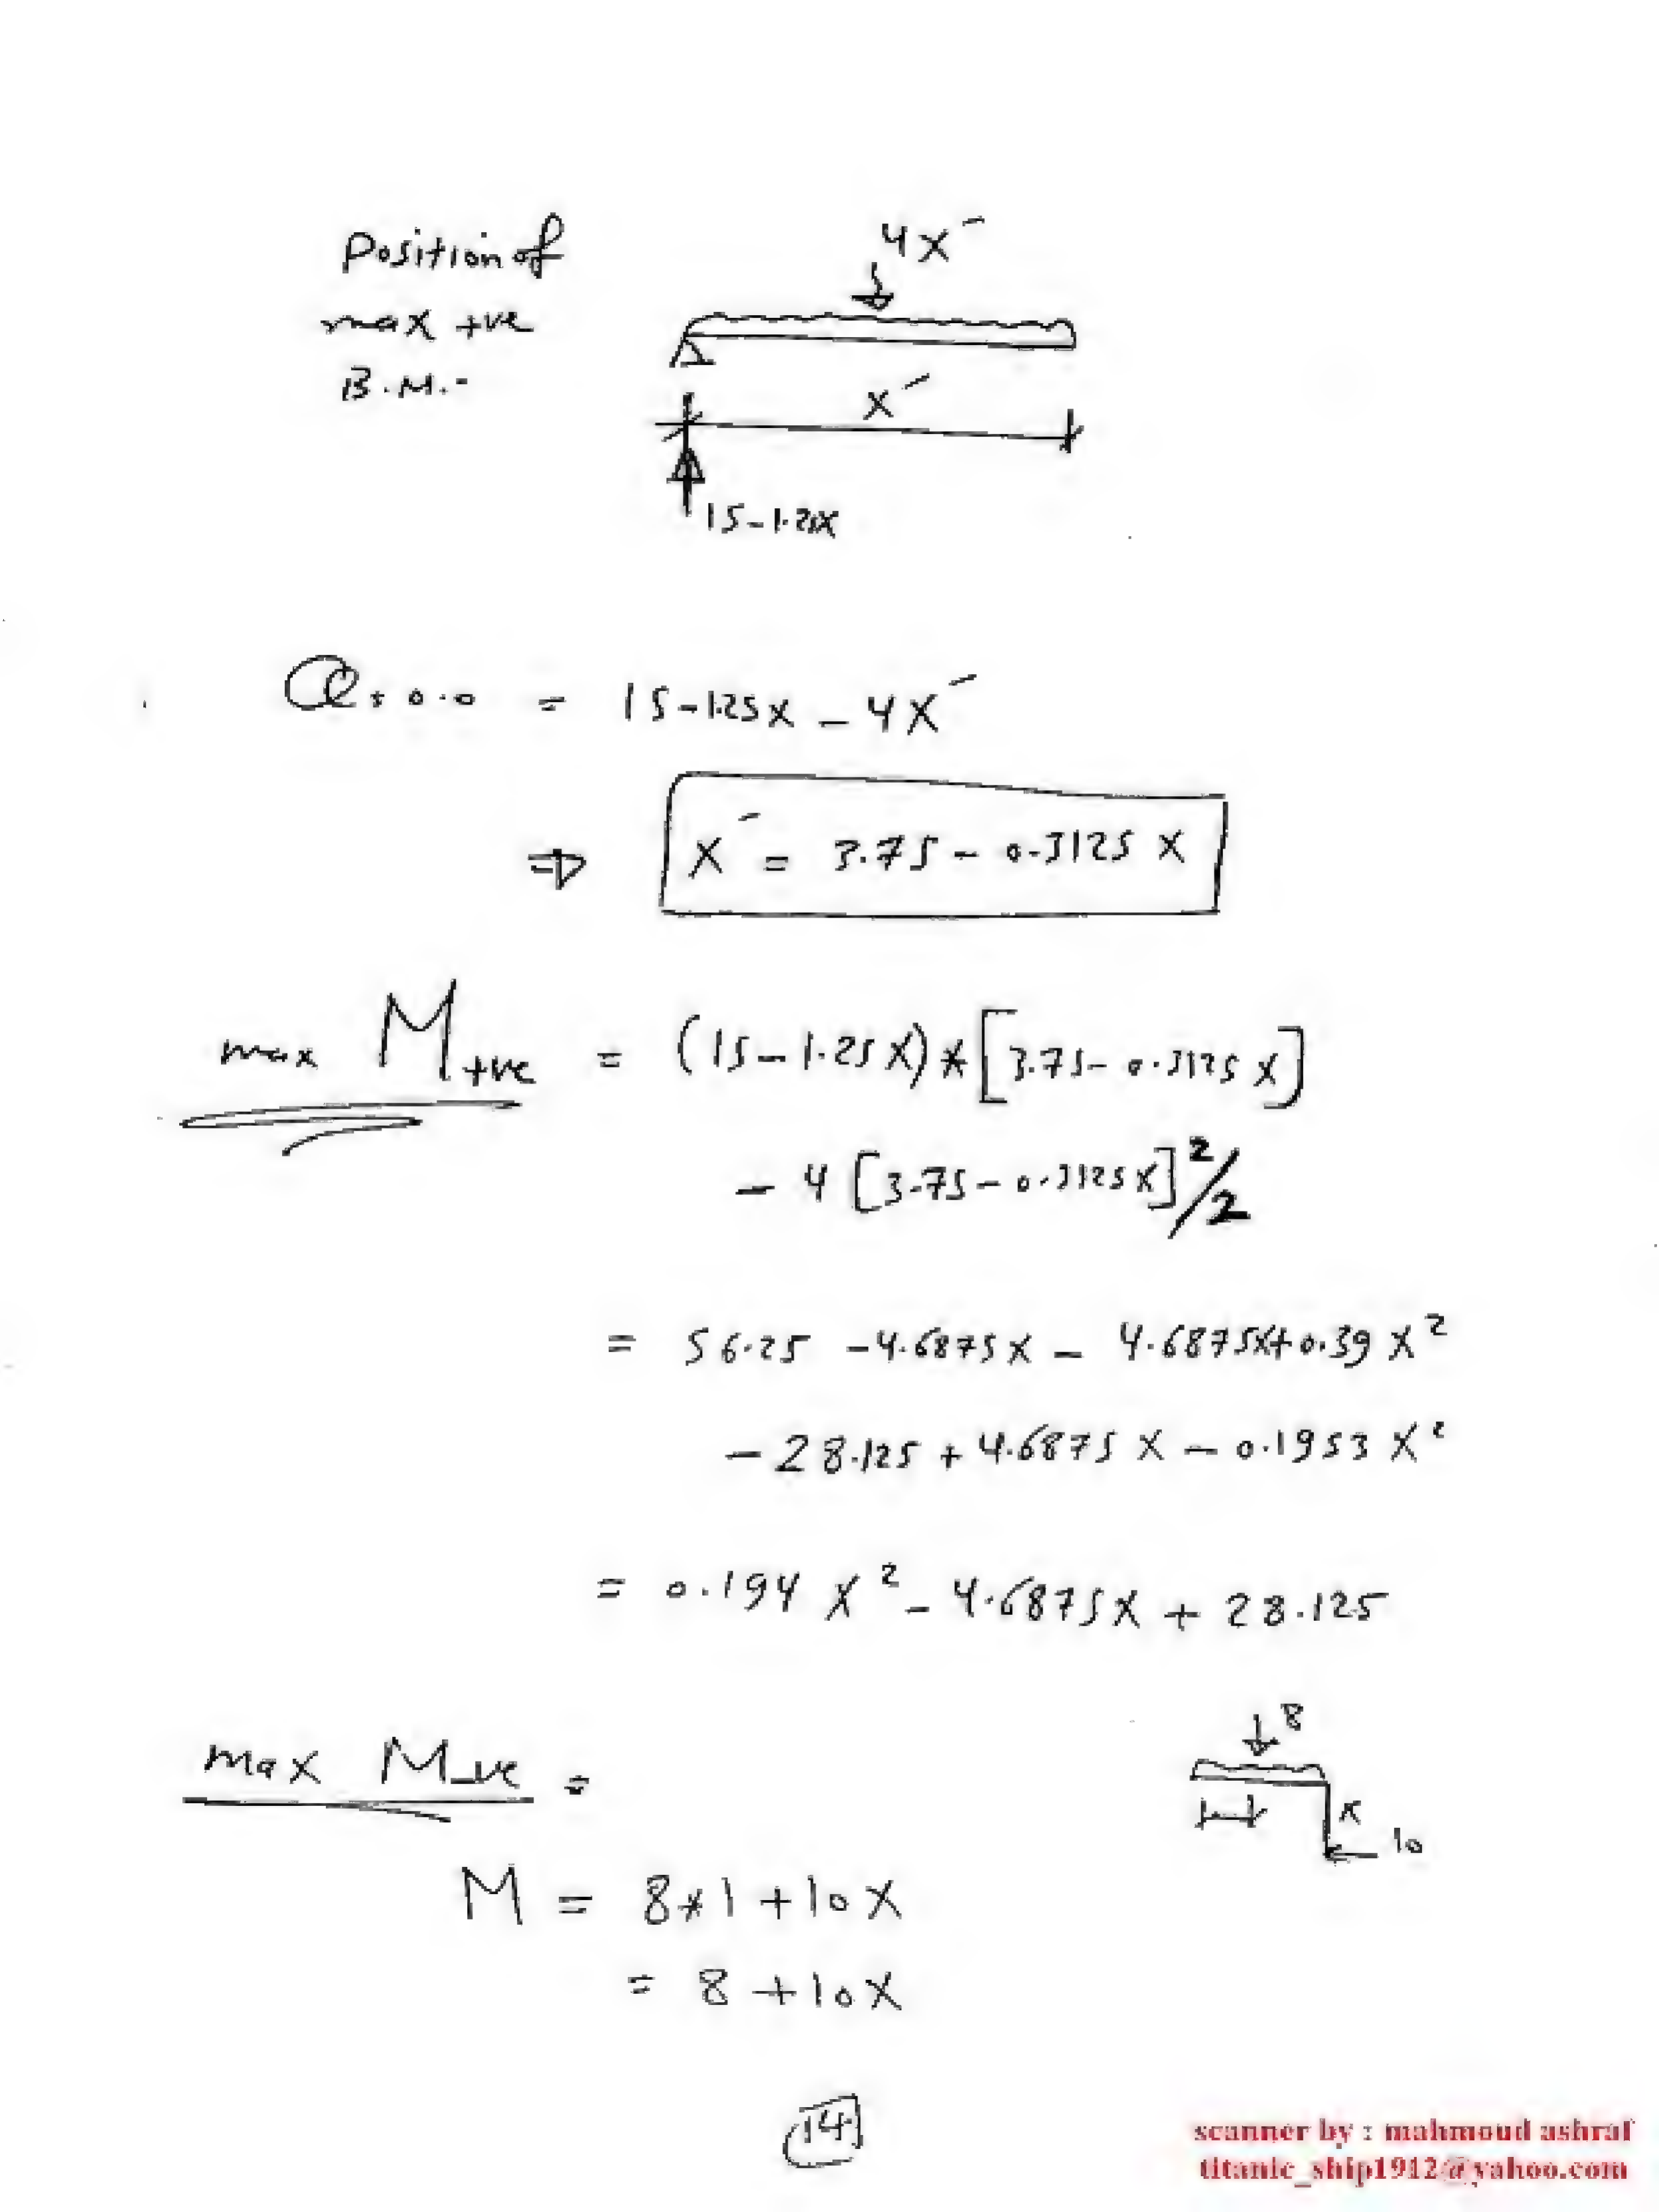 Position of
max +ve
B.M.-
4x´
x´
15-1.25x
Q=0.0 = 15-1.25x - 4x´
⇒ x´ = 3.75 - 0.3125 x
max M+ve = (15-1.25x)*[3.75-0.3125x]
- 4[3.75-0.3125x]²/2
= 56.25 -4.6875x - 4.6875x+0.39 x²
-28.125 + 4.6875x - 0.1953x²
= 0.194 x² - 4.6875x + 28.125
8
max M-ve =
x
10
M = 8*1 + 10x
= 8 + 10x
14
scanner by : mahmoud ashraf
titanic_ship1912@yahoo.com